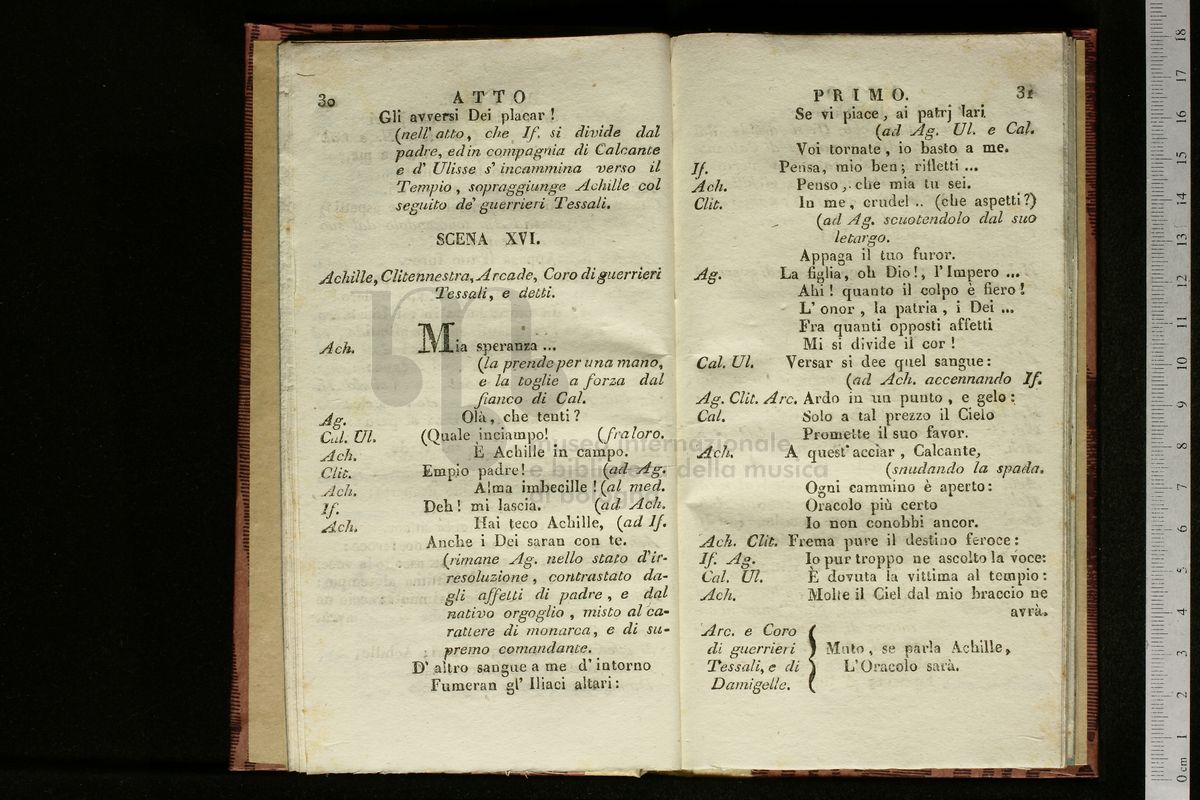 30 ATTO
Gli avversi Dei placar !
(nell' atto, che If. si divide dal
padre, ed in compagnia di Calcante
e d' Ulisse s' incammina verso il
Tempio, sopraggiunge Achille col
seguito de' guerrieri Tessali.
SCENA XVI.
Achille, Clitennestra, Arcade, Coro di guerrieri
Tessali, e detti.
Ach. Mia speranza ...
(la prende per una mano,
e la toglie a forza dal
fianco di Cal.
Ag. Olà, che tenti ?
Cal. Ul. (Quale inciampo! (fra loro.
Ach. È Achille in campo.
Clit. Empio padre! (ad Ag.
Ach. Alma imbecille ! (al med.
If. Deh! mi lascia. (ad Ach.
Ach. Hai teco Achille, (ad If.
Anche i Dei saran con te.
(rimane Ag. nello stato d'ir-
resoluzione, contrastato da-
gli affetti di padre, e dal
nativo orgoglio, misto al ca-
rattere di monarca, e di su-
premo comandante.
D' altro sangue a me d' intorno
Fumeran gl' Iliaci altari:
PRIMO. 31
Se vi piace, ai patrj lari
(ad Ag. Ul. e Cal.
Voi tornate, io basto a me.
If. Pensa, mio ben; rifletti ...
Ach. Penso, che mia tu sei.
Clit. In me, crudel .. (che aspetti?)
(ad Ag. scuotendolo dal suo
letargo.
Appaga il tuo furor.
Ag. La figlia, oh Dio!, l'Impero ...
Ahi ! quanto il colpo è fiero !
L' onor, la patria, i Dei ...
Fra quanti opposti affetti
Mi si divide il cor !
Cal. Ul. Versar si dee quel sangue:
(ad Ach. accennando If.
Ag. Clit. Arc. Ardo in un punto, e gelo:
Cal. Solo a tal prezzo il Cielo
Promette il suo favor.
Ach. A quest' acciar, Calcante,
(snudando la spada.
Ogni cammino è aperto:
Oracolo più certo
Io non conobbi ancor.
Ach. Clit. Frema pure il destino feroce:
If. Ag. Io pur troppo ne ascolto la voce:
Cal. Ul. È dovuta la vittima al tempio:
Ach. Molte il Ciel dal mio braccio ne
avrà.
Arc. e Coro
di guerrieri Muto, se parla Achille,
Tessali, e di L'Oracolo sarà.
Damigelle.
museo internazionale
e biblioteca della musica
di bologna
0 cm 1 2 3 4 5 6 7 8 9 10 11 12 13 14 15 16 17 18